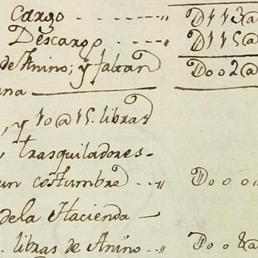 Cargo - - - - - - - - D113@
Descargo - - - - - D115@
de Anino; y faltan D002@
ana
, y 10@15. libras
, trasquiladores-
un costumbre - - D00
de la Hacienda -
. libras de Anino - - D008@